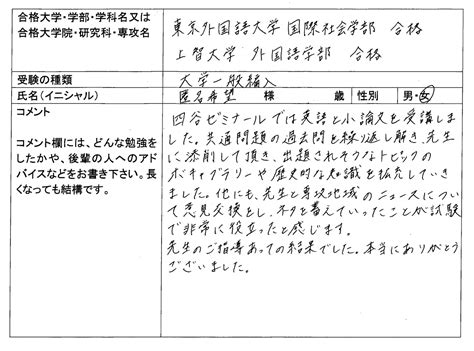 合格大学・学部・学科名又は
合格大学院・研究科・専攻名
東京外国語大学 国際社会学部 合格
上智大学 外国語学部 合格
受験の種類
大学一般編入
氏名（イニシャル）
匿名希望 様 歳 性別 男・女
コメント
コメント欄には、どんな勉強を
したかや、後輩の人へのアド
バイスなどをお書き下さい。長
くなっても結構です。
四谷ゼミナールでは英語と小論文を受講しま
した。共通問題の過去問を繰り返し解き、先生
に添削して頂き、出題されそうなトピックの
ボキャブラリーや歴史的な知識を拡充していき
ました。他にも、先生と専攻地域のニュースについ
て意見交換をし、ネタを蓄えていったことが試験
で非常に役立ったと感じます。
先生のご指導あっての結果でした。本当にありがとう
ございました。